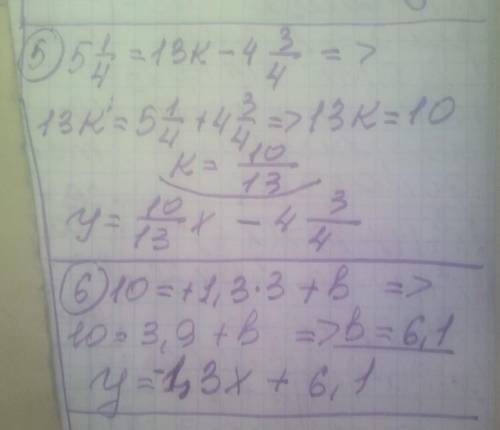 5) 5 1/4 = 13к - 4 3/4 =>
13к = 5 1/4 + 4 3/4 => 13к = 10
к = 10/13
y = 10/13 x - 4 3/4
6) 10 = +1,3·3 + в =>
10 = 3,9 + в => в = 6,1
y = 1,3x + 6,1